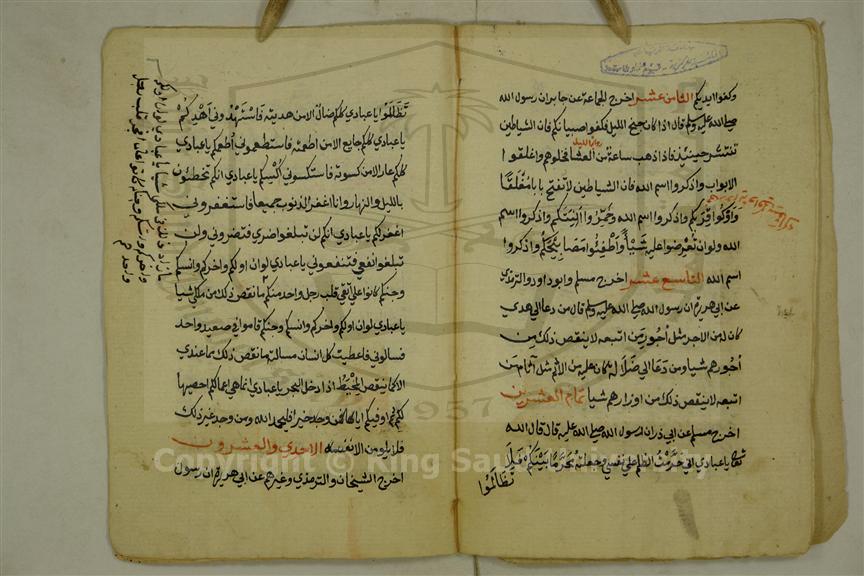 وكفوا ايديكم الثامن عشر اخرج الجماعة عن جابر ان رسول الله
صلى الله عليه وسلم قال اذا كان جنح الليل فكفوا صبيانكم فان الشياطين
تنتشر حينئذ فاذا ذهب ساعة من العشا فخلوهم واغلقوا
الابواب واذكروا اسم الله فان الشياطين لا تفتح بابا مغلقا
واوكوا قربكم واذكروا اسم الله وخمروا آنيتكم واذكروا اسم
الله ولو ان تعرضوا عليه شيأ واطفئوا مصابيحكم واذكروا
اسم الله التاسع عشر اخرج مسلم وابو داود والترمذي
عن ابي هريرة ان رسول الله صلى الله عليه وسلم قال من دعا الى هدي
كان له من الاجر مثل اجور من اتبعه لا ينقص ذلك من
اجورهم شيا ومن دعا الى ضلالة كان عليه من الاثم مثل آثام من
اتبعه لا ينقص ذلك من اوزارهم شيا تمام العشرين
اخرج مسلم عن ابي ذر ان رسول الله صلى الله عليه قال قال الله
تعالى يا عبادي اني حرمت الظلم على نفسي وجعلته محرما بينكم فلا
تظالموا
تظالموا يا عبادي كلكم ضال الا من هديته فاستهدوني اهدكم
يا عبادي كلكم جايع الا من اطعمته فاستطعموني اطعمكم يا عبادي
كلكم عار الا من كسوته فاستكسوني اكسكم يا عبادي انكم تخطئون
بالليل والنهار وانا اغفر الذنوب جميعا فاستغفروني
اغفر لكم يا عبادي انكم لن تبلغوا ضري فتضروني ولن
تبلغوا نفعي فتنفعوني يا عبادي لو ان اولكم واخركم وانسكم
وجنكم كانوا على اتقى قلب رجل واحد منكم ما نقص ذلك من ملكي شيا
يا عبادي لو ان اولكم واخركم وانسكم وجنكم قاموا في صعيد واحد
فسالوني فاعطيت كل انسان مسالته ما نقص ذلك مما عندي
الا كما ينقص المخيط اذا ادخل البحر يا عبادي انما هي اعمالكم احصيها
لكم ثم اوفيكم اياها فمن وجد خيرا فليحمد الله ومن وجد غير ذلك
فلا يلومن الا نفسه الاحدي والعشرون
اخرج الشيخان والترمذي وغيرهم عن ابي هريرة ان رسول
ما زاد ذلك في ملكي شيا يا عبادي لو ان اولكم
واخركم وانسكم وجنكم كانوا على افجر قلب رجل
واحد منكم
1957
Copyright © King Saud University